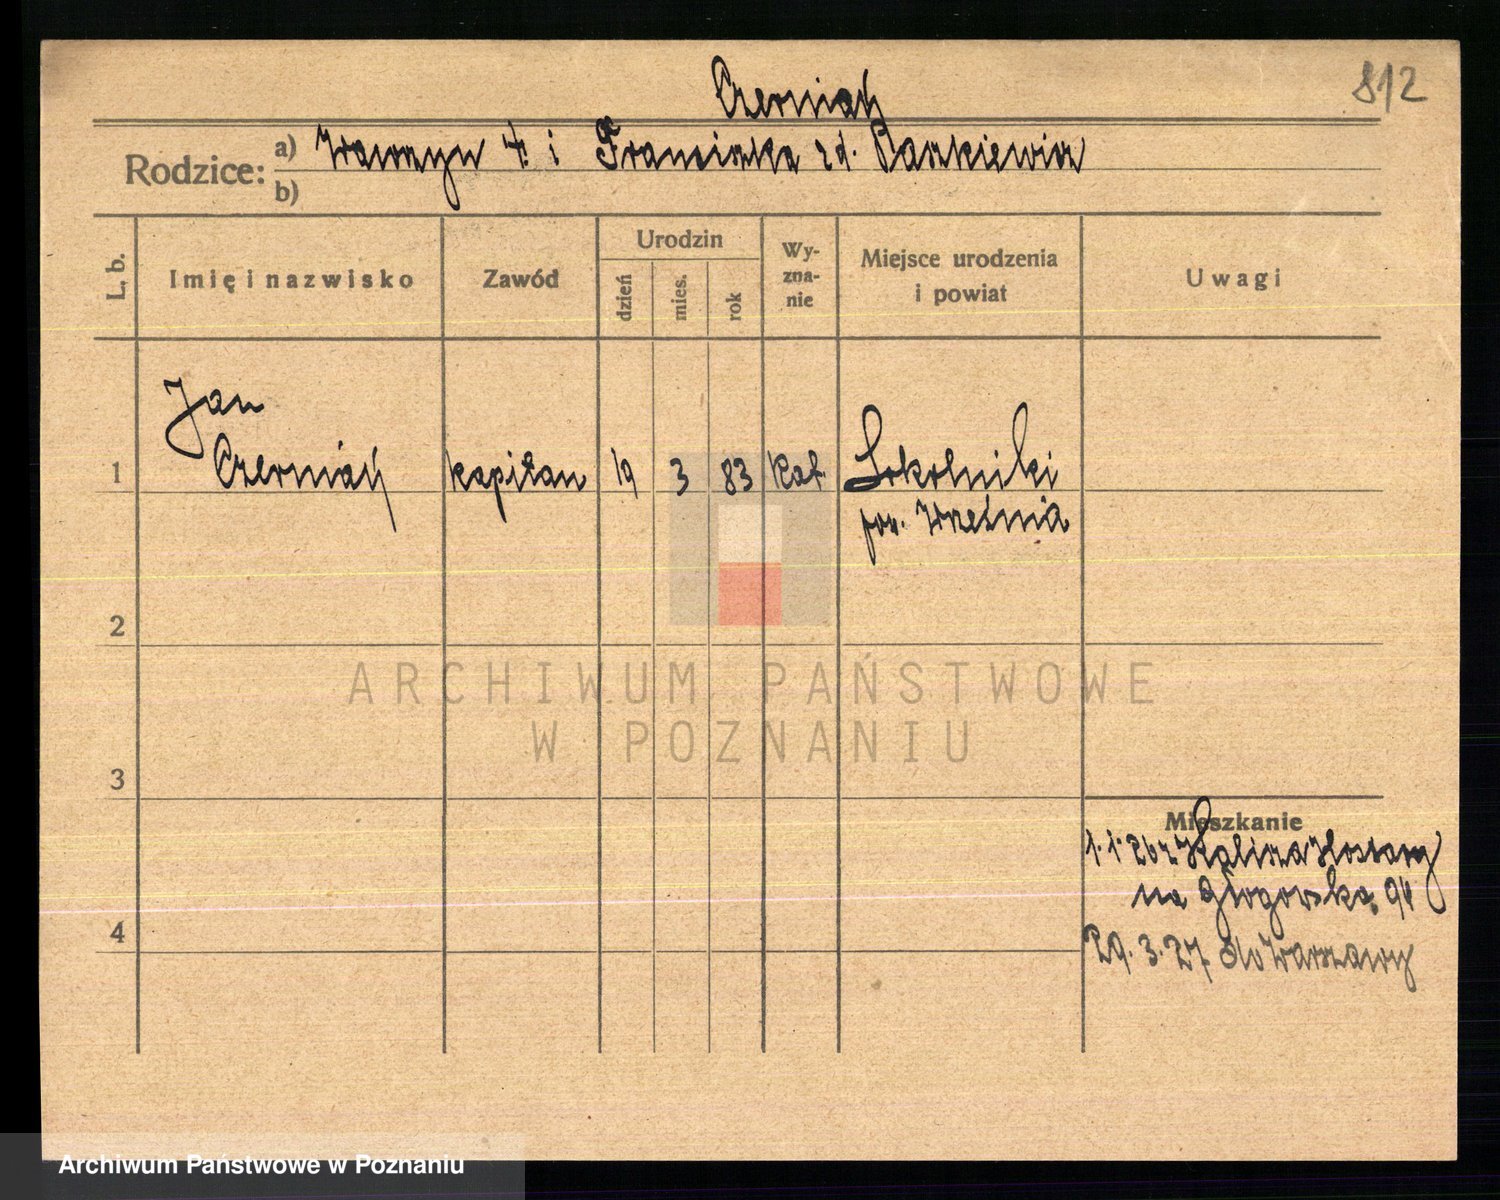 812
Czerniak
Rodzice: a) Wawrzyn i Franciszka zd. Paszkiewicz
b)
L. b. Imię i nazwisko Zawód Urodzin dzień mies. rok Wyznanie Miejsce urodzenia i powiat Uwagi
Jan
1 Czerniak kapitan 19 3 83 kat. Sokolniki
pow. Września
2
ARCHIWUM PAŃSTWOWE
W POZNANIU
3
Mieszkanie
1.1.26 z Kalisza
na Głogowska 94
4
29.3.27 do Warszawy
Archiwum Państwowe w Poznaniu